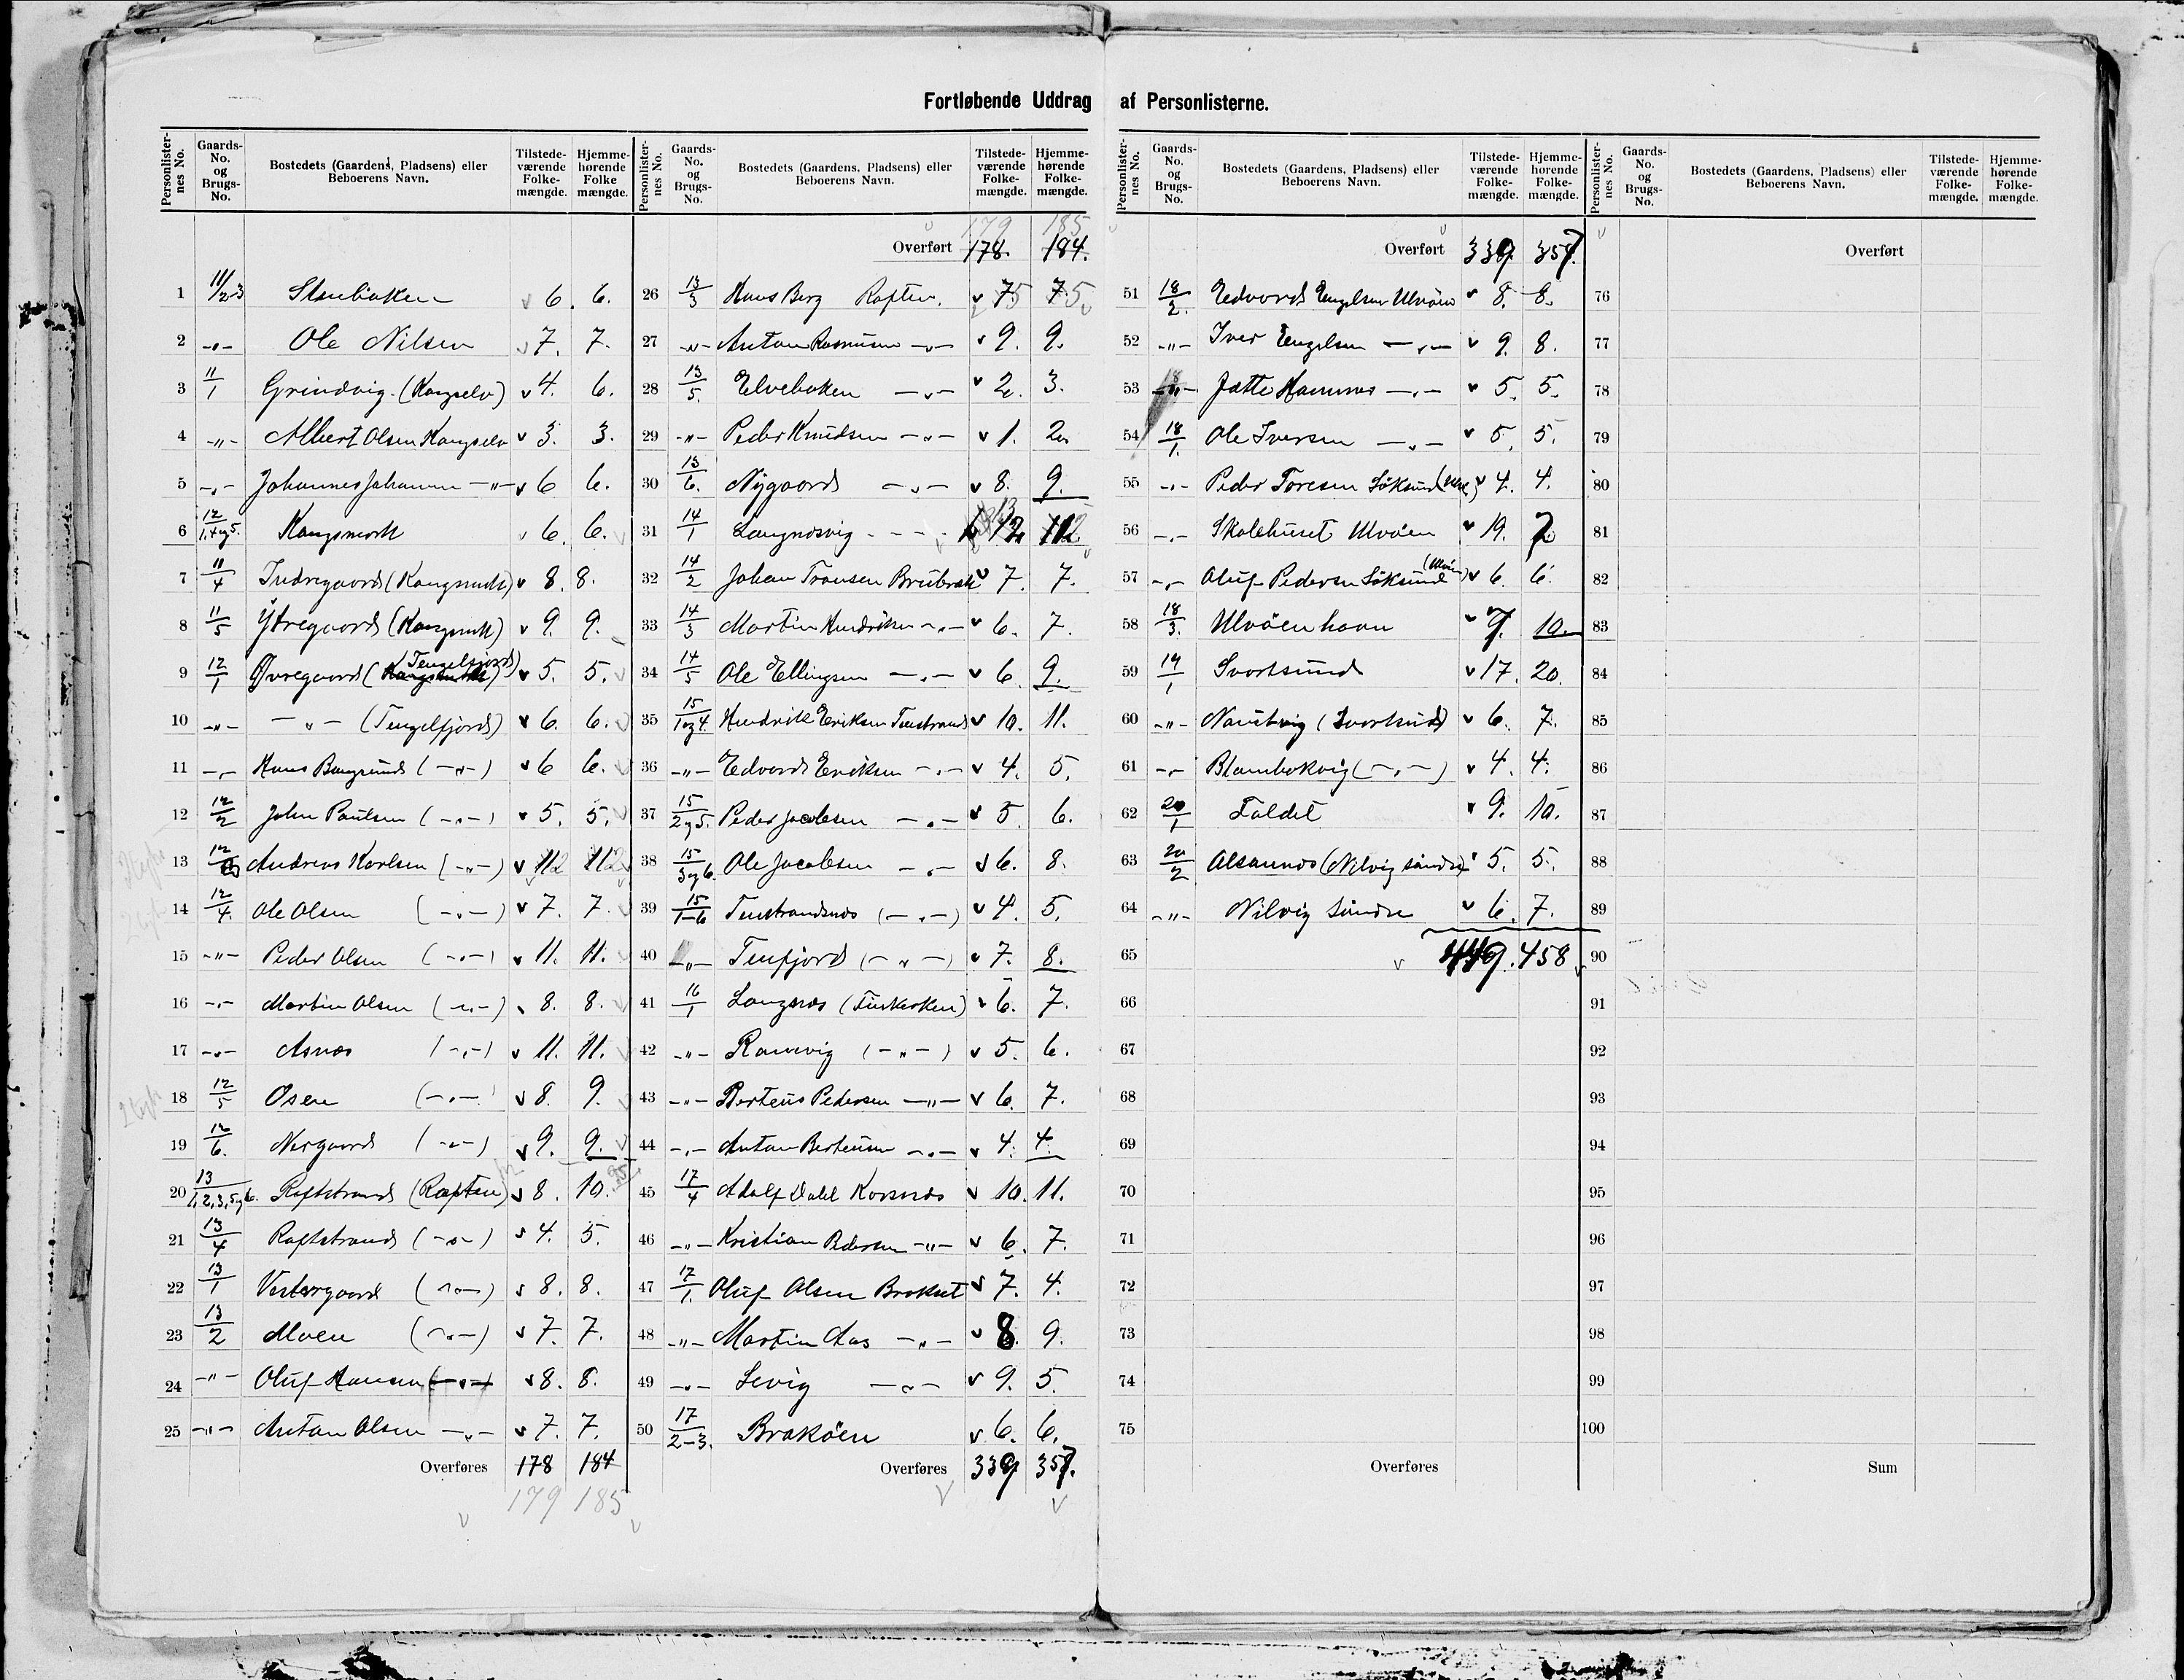 Fortløbende Uddrag af Personlisterne.
Personlister-nes No. Gaards-No. og Brugs-No. Bostedets (Gaardens, Pladsens) eller Beboerens Navn. Tilstede-værende Folke-mængde. Hjemme-hørende Folke mængde.
1 11/2-3 6. 6.
2 -"- Ole Nilsen 7. 7.
3 11/1 Grindvig (Kangselv) 4. 6.
4 -"- Albert Olsen Kangselv 3. 3.
5 -"- Johannes Johansen -"- 6 6.
6 12/1,4og5. Kangsmark 6. 6.
7 11/4 Indregaard (Kangsmark) 8. 8.
8 11/5 Ytregaard (Kangsmark) 9. 9.
9 12/1 Øvregaard (Tengelfjord) 5. 5.
10 -"- -"- (Tengelfjord) 6. 6.
11 -"- Hans (-"-) 6 6.
12 12/2 John Paulsen (-"-) 5. 5.
13 12/3 Andreas Karlsen (-"-) 112 112
14 12/4. Ole Olsen (-"-) 7. 7.
15 -"- Peder Olsen (-"-) 11. 11.
16 -"- Martin Olsen (-"-) 8. 8.
17 -"- Asnæs (-"-) 11. 11.
18 12/5 Osen (-"-) 8. 9.
19 12/6. Nergaard (-"-) 9. 9.
20 13/1,2,3,5og6. Raftstrand (Raften) 8. 10.
21 13/4 Raftstrand (-"-) 4. 5.
22 13/1 Vestergaard (-"-) 8. 8.
23 13/2 Moen (-"-) 7. 7.
24 -"- Oluf Hansen (-"-) 8. 8.
25 -"- Anton Olsen -"- 7. 7.
Overføres 178 184
179 185
Personlister-nes No. Gaards-No. og Brugs-No. Bostedets (Gaardens, Pladsens) eller Beboerens Navn. Tilstede-værende Folke-mængde. Hjemme-hørende Folke-mængde.
179 185
Overført 178. 184.
26 13/3 Hans Berg Raften. 75 75
27 -"- Anton Rasmussen -"- 9. 9.
28 13/5. Elvebakken -"- 2. 3.
29 -"- Peder Knudsen -"- 1. 2.
30 13/6. Nygaard -"- 8. 9.
31 14/1 Langnæsvig 13 12 112.
32 14/2 Johan Transen 7. 7.
33 14/3 Martin Hendriksen -"- 6. 7.
34 14/5 Ole Ellingsen -"- 6 9.
35 15/1og4. Hendrik Eriksen Tenstrand 10. 11.
36 -"- Edvard Eriksen -"- 4. 5.
37 15/2og5. Peder Jacobsen -"- 5. 6.
38 15/3og6. Ole Jacobsen -"- 6. 8.
39 15/1-6 Tenstrandnæs (-"-) 4. 5.
40 -"- Tenfjord (-"-) 7. 8.
41 16/1 Langnæs 6. 7.
42 -"- Ramvig (-"-) 5. 6.
43 -"- Berteus Pedersen -"- 6. 7.
44 -"- Anton Berteusen -"- 4. 4.
45 17/4 Adolf Dahl Korsnæs 10. 11.
46 -"- Kristian Pedersen -"- 6. 7.
47 17/1. Oluf Olsen Brakset 7. 4.
48 -"- Martin Aas -"- 8. 9.
49 -"- Sevig -"- 9. 5.
50 17/2-3. Brakøen 6. 6.
Overføres 339 357.
Personlister-nes No. Gaards-No. og Brugs-No. Bostedets (Gaardens, Pladsens) eller Beboerens Navn. Tilstede-værende Folke-mængde. Hjemme-hørende Folke-mængde.
Overført 339 357.
51 18/2. Edvard Engelsen Ulvöen 8. 8.
52 -"- Iver Engelsen -"- 9. 8.
53 -"- Jette Hannæs -"- 5. 5.
54 18/1. Ole Iversen -"- 5. 5.
55 -"- Peder Toresen Söksund 4. 4.
56 -"- Skolehuset Ulvöen 19. 7.
57 -"- Oluf Pedersen Söksund (Ulvöen) 6. 6.
58 18/3. Ulvöenhavn 9. 10.
59 19/1 Svartsund 17. 20.
60 -"- Naustvig (Svartsund) 6. 7.
61 -"- Blambakvig (-"-) 4. 4.
62 20/1 Faldet 9. 10.
63 20/2 Alsaunæs (Nilvig søndre) 5. 5.
64 -"- Nilvig søndre 6. 7.
65 449. 458
66
67
68
69
70
71
72
73
74
75
Overføres
Personlister-nes No. Gaards-No. og Brugs-No. Bostedets (Gaardens, Pladsens) eller Beboerens Navn. Tilstede-værende Folke-mængde. Hjemme-hørende Folke-mængde.
Overført
76
77
78
79
80
81
82
83
84
85
86
87
88
89
90
91
92
93
94
95
96
97
98
99
100
Sum